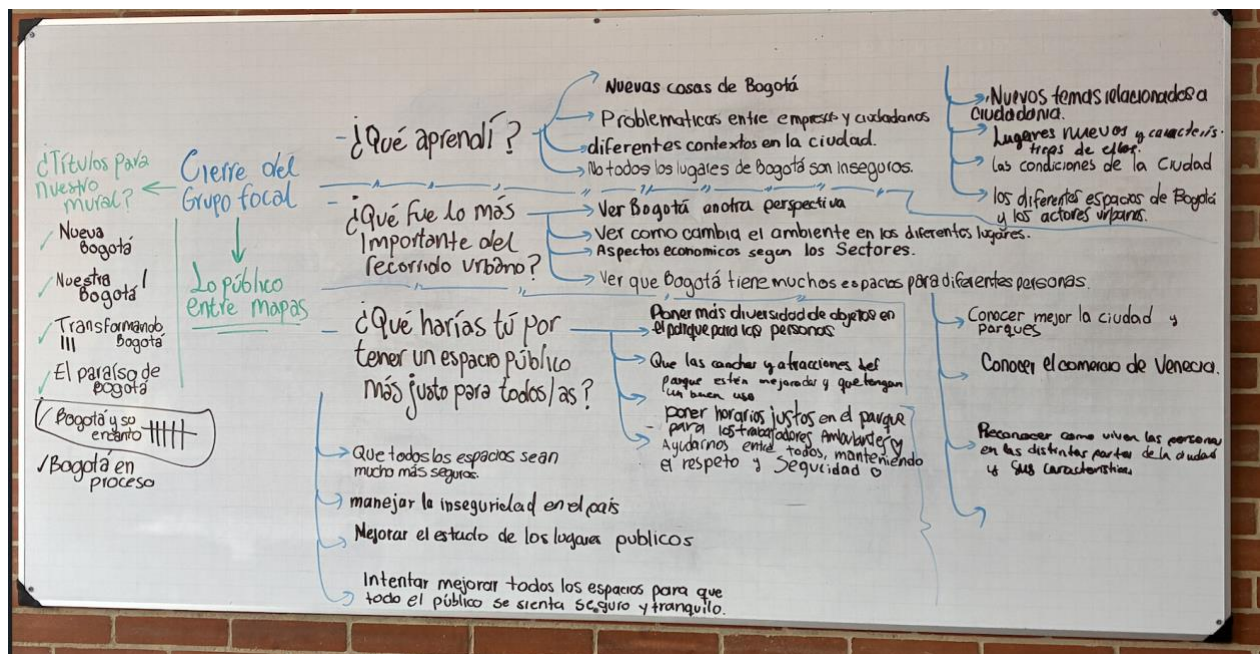 ¿Títulos para
nuestro
mural?
Nueva
Bogotá
Nuestra /
Bogotá
Transformando
III Bogotá
El paraíso de
Bogotá
Bogotá y su
encanto
Bogotá en
proceso
Cierre del
Grupo focal
Lo público
entre mapas
- ¿Qué aprendí?
Nuevas cosas de Bogotá
Problematicas entre empresas y ciudadanos
diferentes contextos en la ciudad.
No todos los lugares de Bogotá son inseguros.
Nuevos temas relacionados a
ciudadania.
Lugares nuevos y caracterís-
ticas de ellos.
las condiciones de la Ciudad
los diferentes espacios de Bogotá
y los actores urbanos.
- ¿Qué fue lo más
importante del
recorrido urbano?
Ver Bogotá en otra perspectiva
Ver como cambia el ambiente en los diferentes lugares.
Aspectos economicos segun los Sectores.
Ver que Bogotá tiene muchos espacios para diferentes personas.
Conocer mejor la ciudad y
parques
Conocer el comercio de Venecia.
Reconocer como viven las personas
en las distintas partes de la ciudad
y sus caracteristicas
- ¿Qué harías tú por
tener un espacio público
más justo para todos/as?
Poner más diversidad de objetos en
el parque para las personas
Que las canchas y atracciones del
parque estén mejoradas y que tengan
un buen uso
- poner horarios justos en el parque
para los trabajadores Ambulantes y
Ayudarnos entre todos, manteniendo
el respeto y Seguridad
Que todos los espacios sean
mucho más seguros.
manejar la inseguridad en el país
Mejorar el estado de los lugares publicos
Intentar mejorar todos los espacios para que
todo el público se sienta seguro y tranquilo.